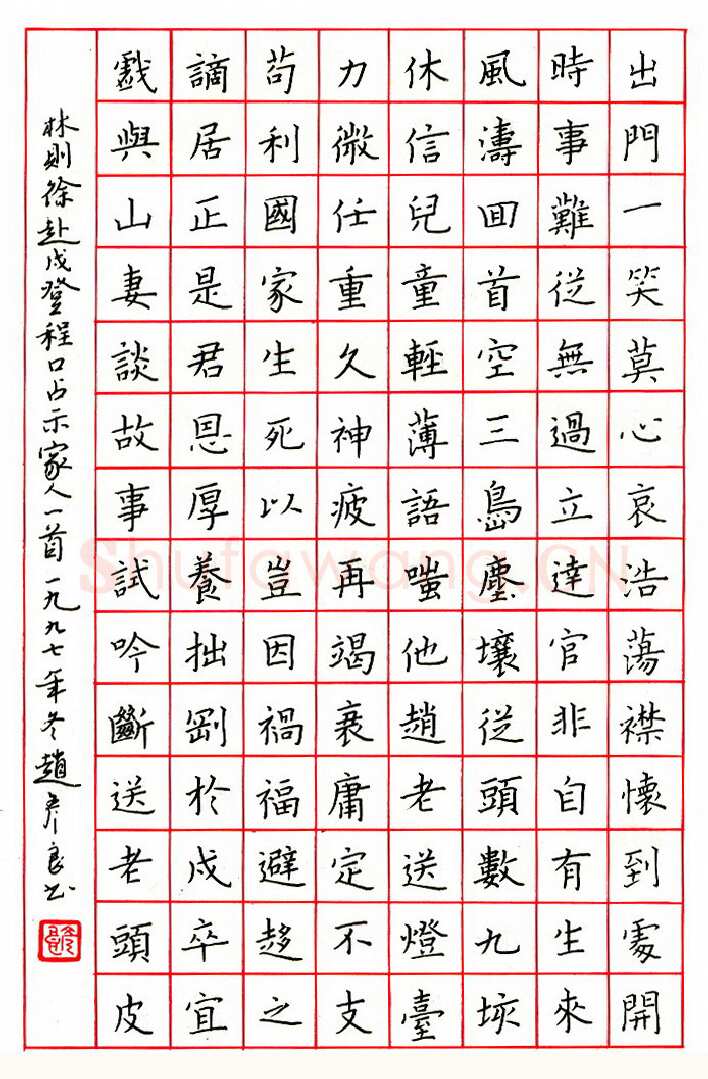 出門一笑莫心哀浩蕩襟懷到處開
時事難從無過立達官非自有生來
風濤囬首空三島塵壤從頭數九垓
休信兒童輕薄語嗤他趙老送燈臺
力微任重久神疲再竭衰庸定不支
苟利國家生死以豈因禍福避趍之
謫居正是君恩厚養拙剛於戍卒宜
戲與山妻談故事試吟斷送老頭皮
林則徐赴戍登程口占示家人一首一九九七年冬趙彥良书
Shufawang.CN